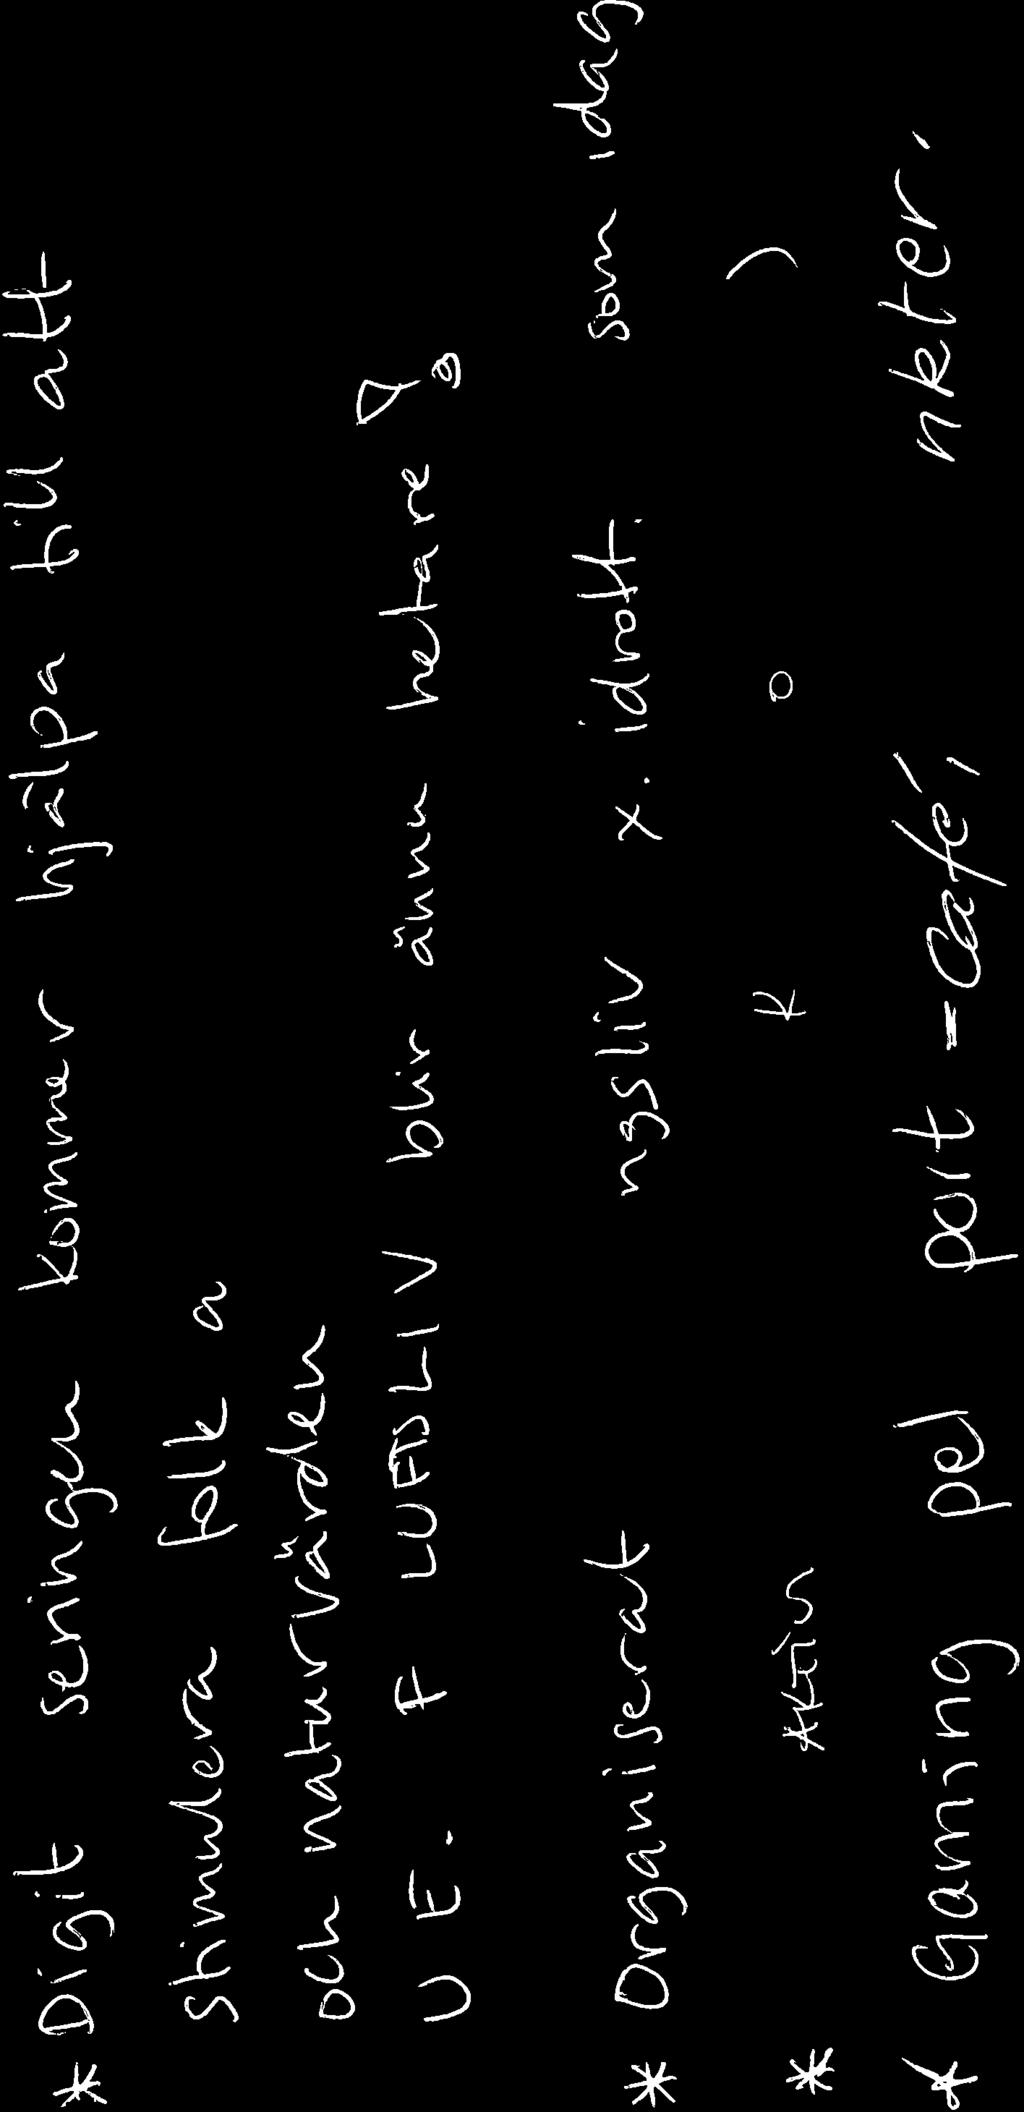 * Digit seringen kommer hjälpa till att
stimulera folk a
och naturvärden
U E. F LUFTSLIV blir ännu hetare
* Organiserat ngsliv x. idrott. som idag
* R o )
* Gaming pel port - Café, nkter.